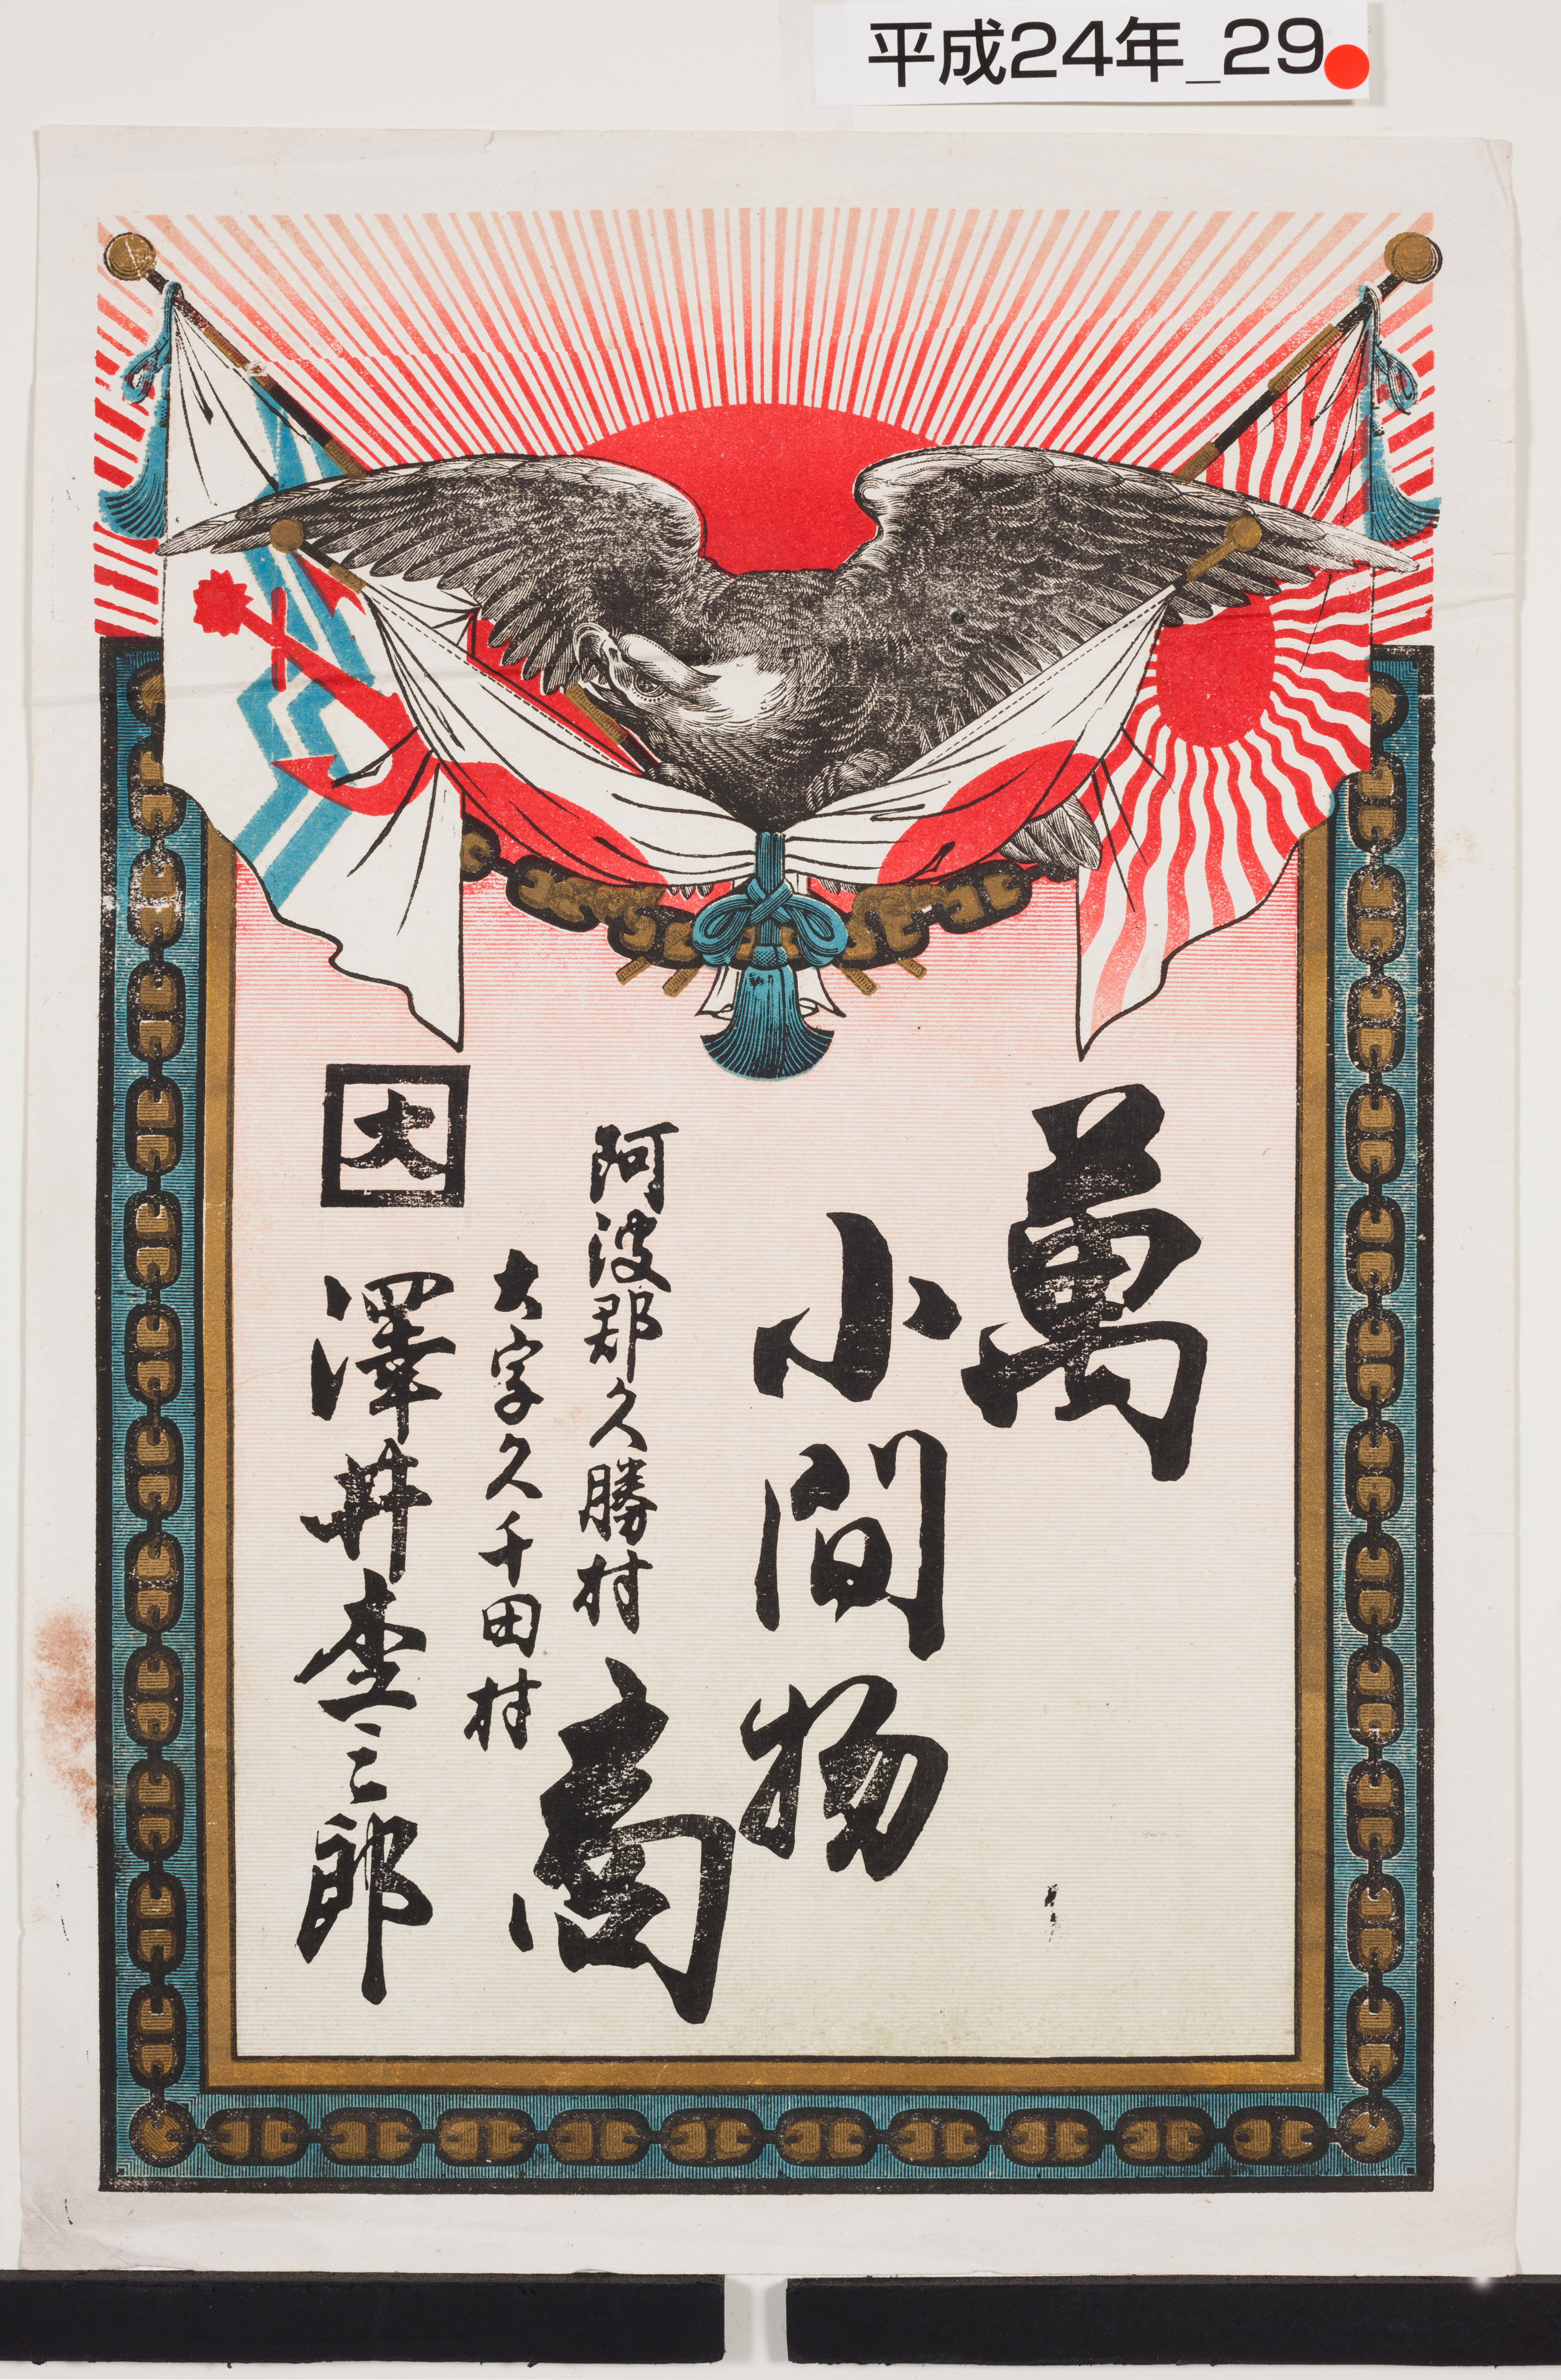 平成24年_29
萬
小間物
商
阿波郡久勝村
大字久千田村
大
澤井杢三郎